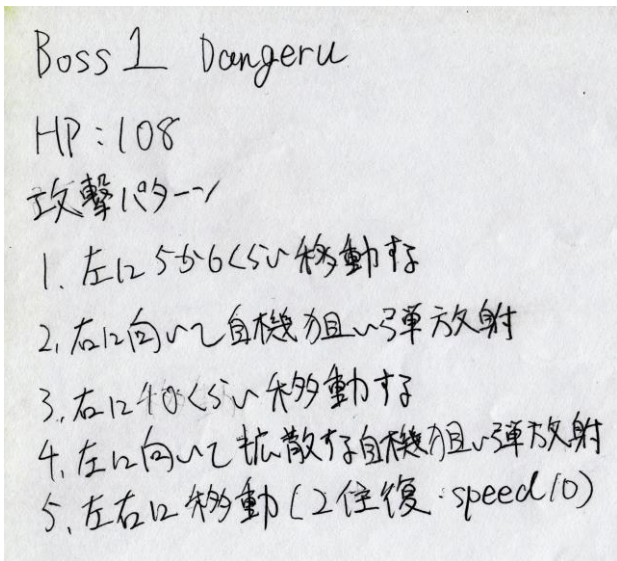 Boss 1 Dangeru
HP:108
攻撃パターン
1. 左に5か6くらい移動する
2. 右に向いて自機狙い弾放射
3. 右に40くらい移動する
4. 左に向いて拡散する自機狙い弾放射
5. 左右に移動(2往復:speed10)